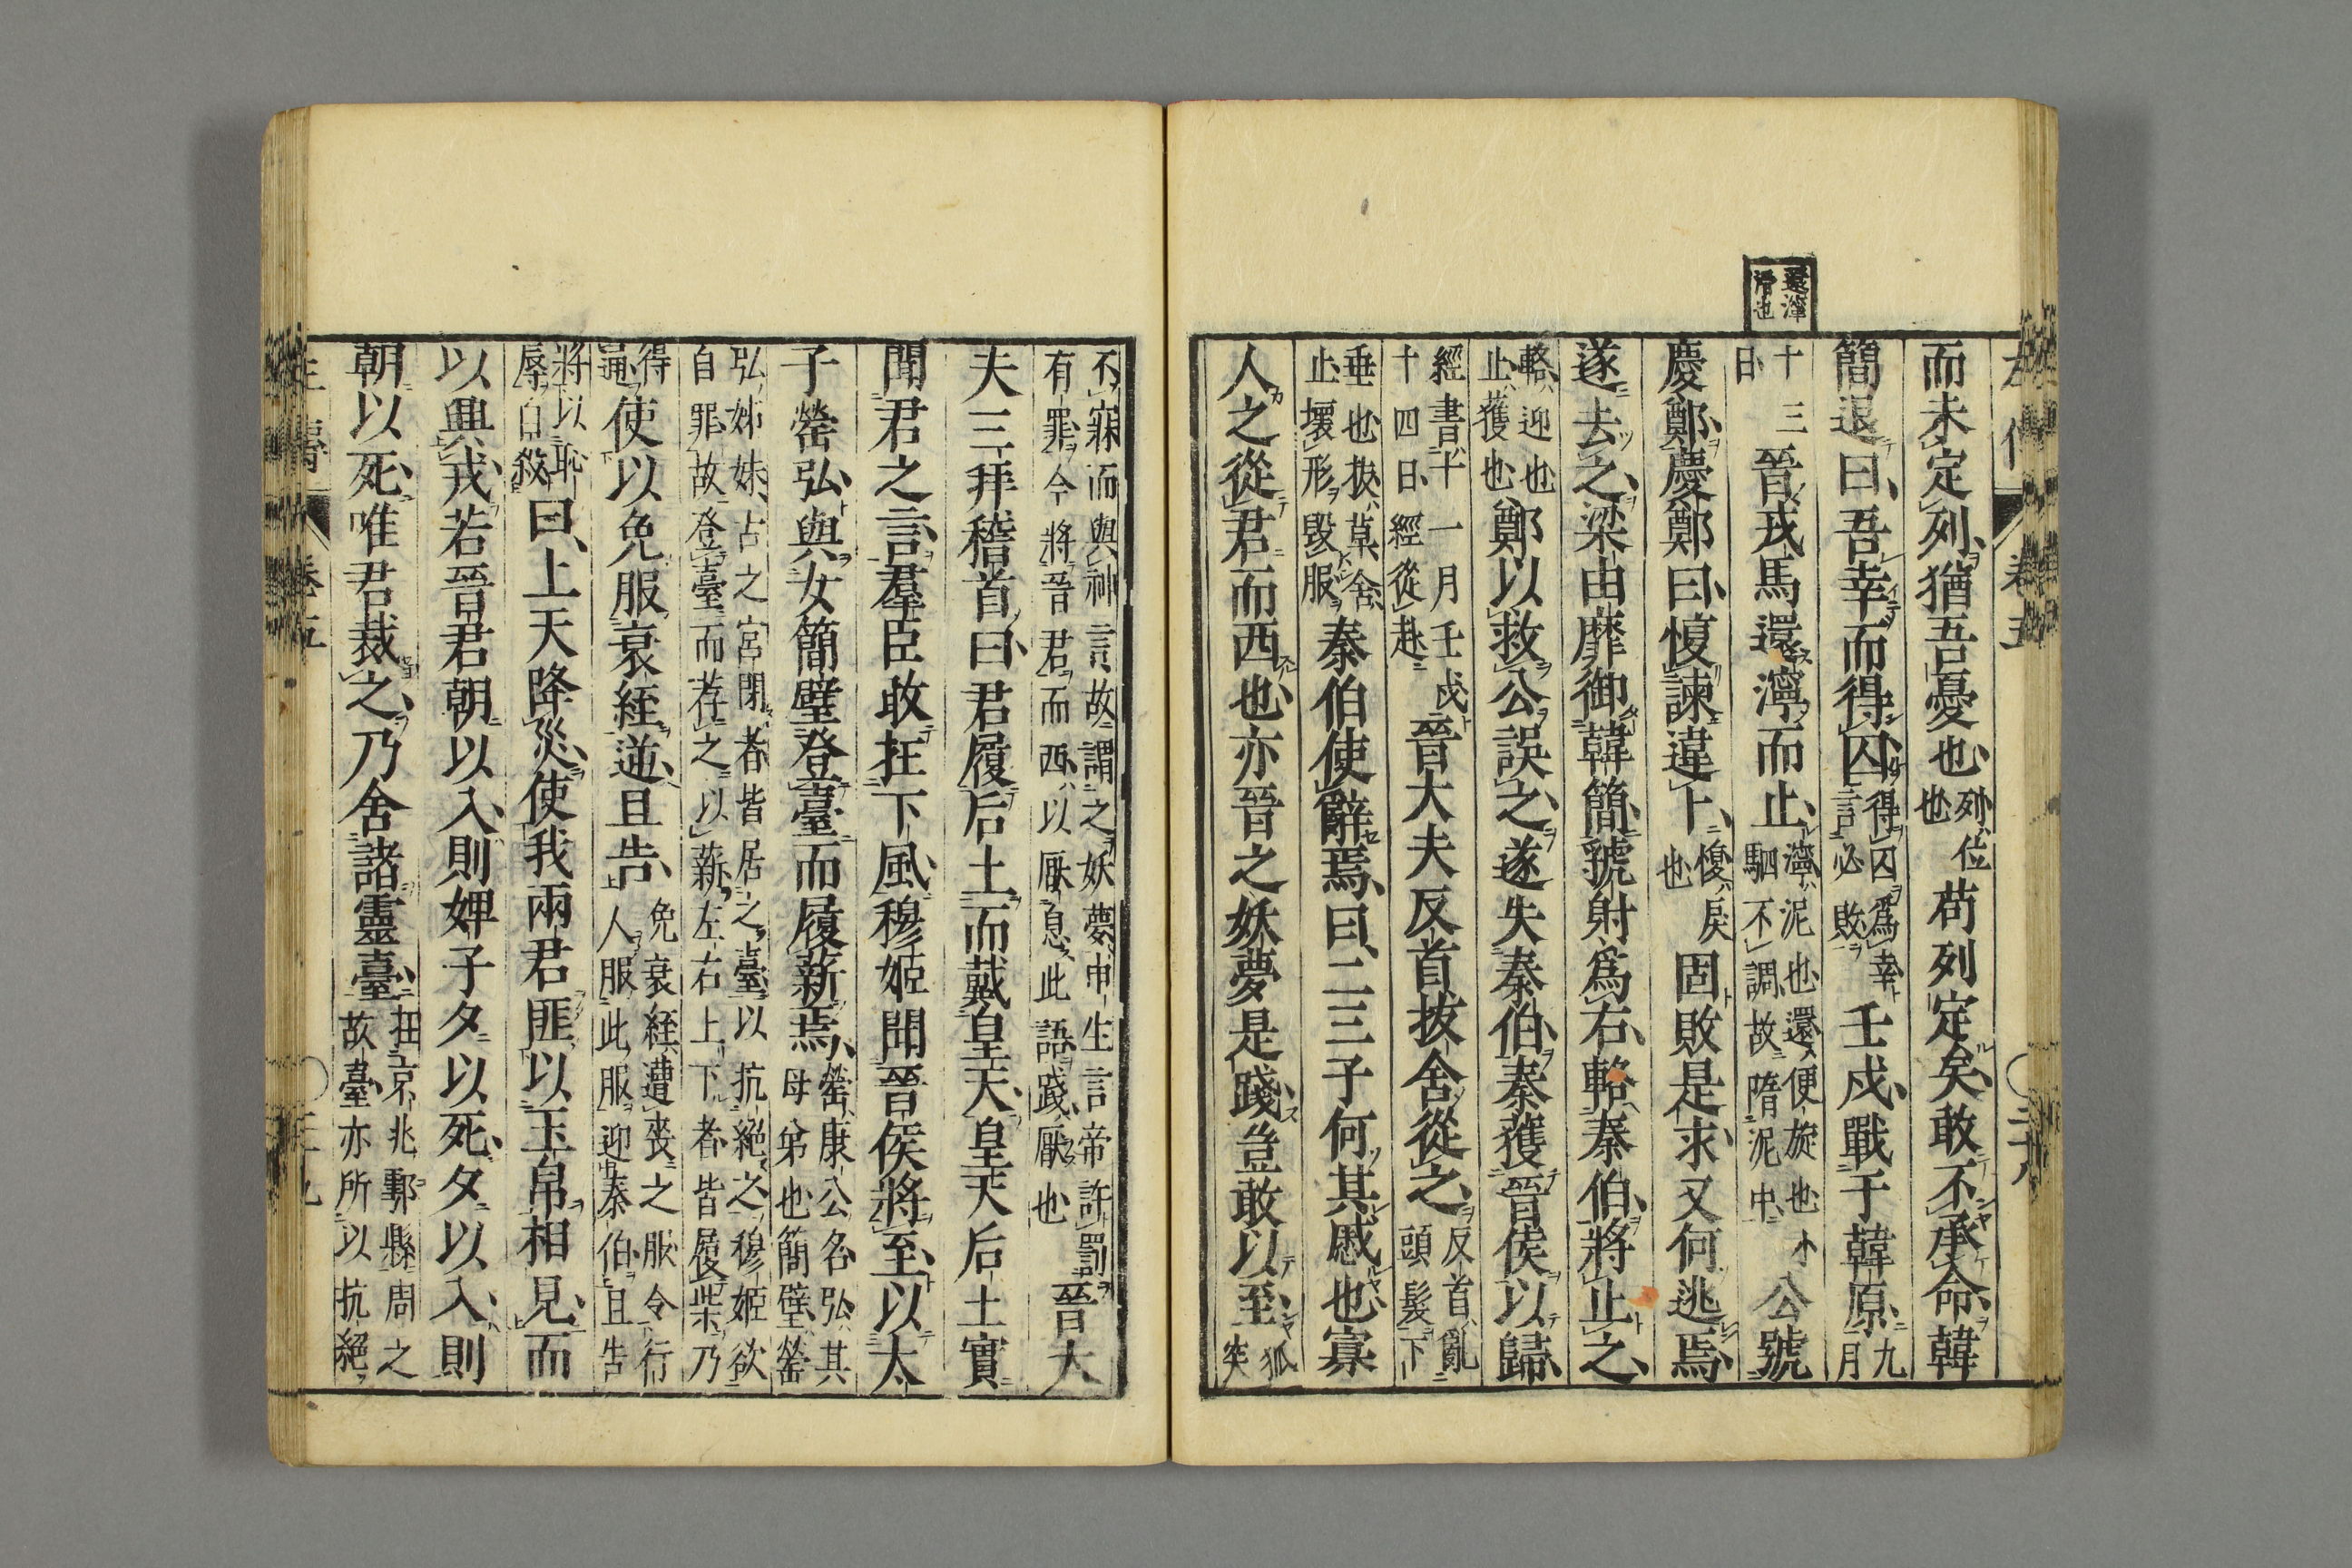 還濘
滑也
而未定列猶吾憂也列位也苟列定矣敢不承命韓
簡退曰吾幸而得囚得囚爲幸言必敗壬戌戰于韓原九月
十三日晉戎馬還濘而止濘泥也還便旋也小駟不調故隋泥中公號
慶鄭慶鄭曰愎諫違卜愎戾也固敗是求又何逃焉
遂去之梁由靡御韓簡虢射爲右輅秦伯將止之
輅迎也止獲也鄭以救公誤之遂失秦伯秦獲晉侯以歸
經書十一月壬戌十四日經從赴晉大夫反首拔舍從之反首亂頭髮下
垂也拔草舍止壞形毀服秦伯使辭焉曰二三子何其慼也寡
人之從君而西也亦晉之妖夢是踐豈敢以至狐突
不寐而與神言故謂之妖夢申生言帝許罰有罪今將晉君而西以厭息此語踐厭也晉大
夫三拜稽首曰君履后土而戴皇天皇天后土實
聞君之言羣臣敢在下風穆姬聞晉侯將至以太
子罃弘與女簡璧登臺而履薪焉罃康公名弘其母弟也簡璧罃
弘姊妹古之宮閉者皆居之臺以抗絕之穆姬欲自罪故登臺而荐之以薪左右上下者皆履柴乃
得通使以免服衰絰逆且告免衰絰遭喪之服令行人服此服迎秦伯且告
將以恥辱自殺曰上天降災使我兩君匪以玉帛相見而
以興戎若晉君朝以入則婢子夕以死夕以入則
朝以死唯君裁之乃舍諸靈臺在京兆鄠縣周之故臺亦所以抗絕